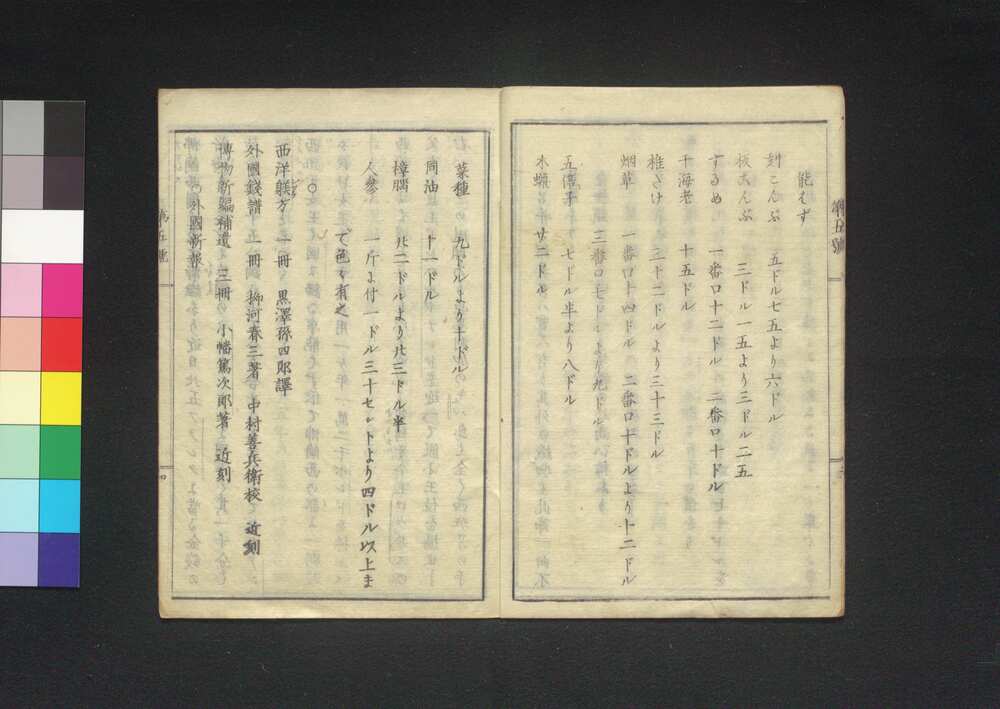 第五號
能はず
刻こんぶ 五ドル七五より六ドル
板こんぶ 三ドル一五より三ドル二五
するめ 一番口十二ドル 二番口十ドル
干海老 十五ドル
椎たけ 三十二ドルより三十三ドル
烟草 一番口十四ドル 二番口十ドルより十二ドル
三番口七ドルより九ドル
五倍子 七ドル半より八ドル
木蝋 廿二ドル
菜種 九ドルより十ドル
同油 十一ドル
樟腦 廿二ドルより廿三ドル半
人参 一斤に付一ドル三十セントより四ドル以上ま
で色々有之
○
西洋躾方 一冊 黒澤孫四郎譯
外國錢譜 一冊 柳河春三著 中村善兵衛校 近刻
博物新編補遺 三冊 小幡篤次郎著 近刻
○外國新報
第五號
四